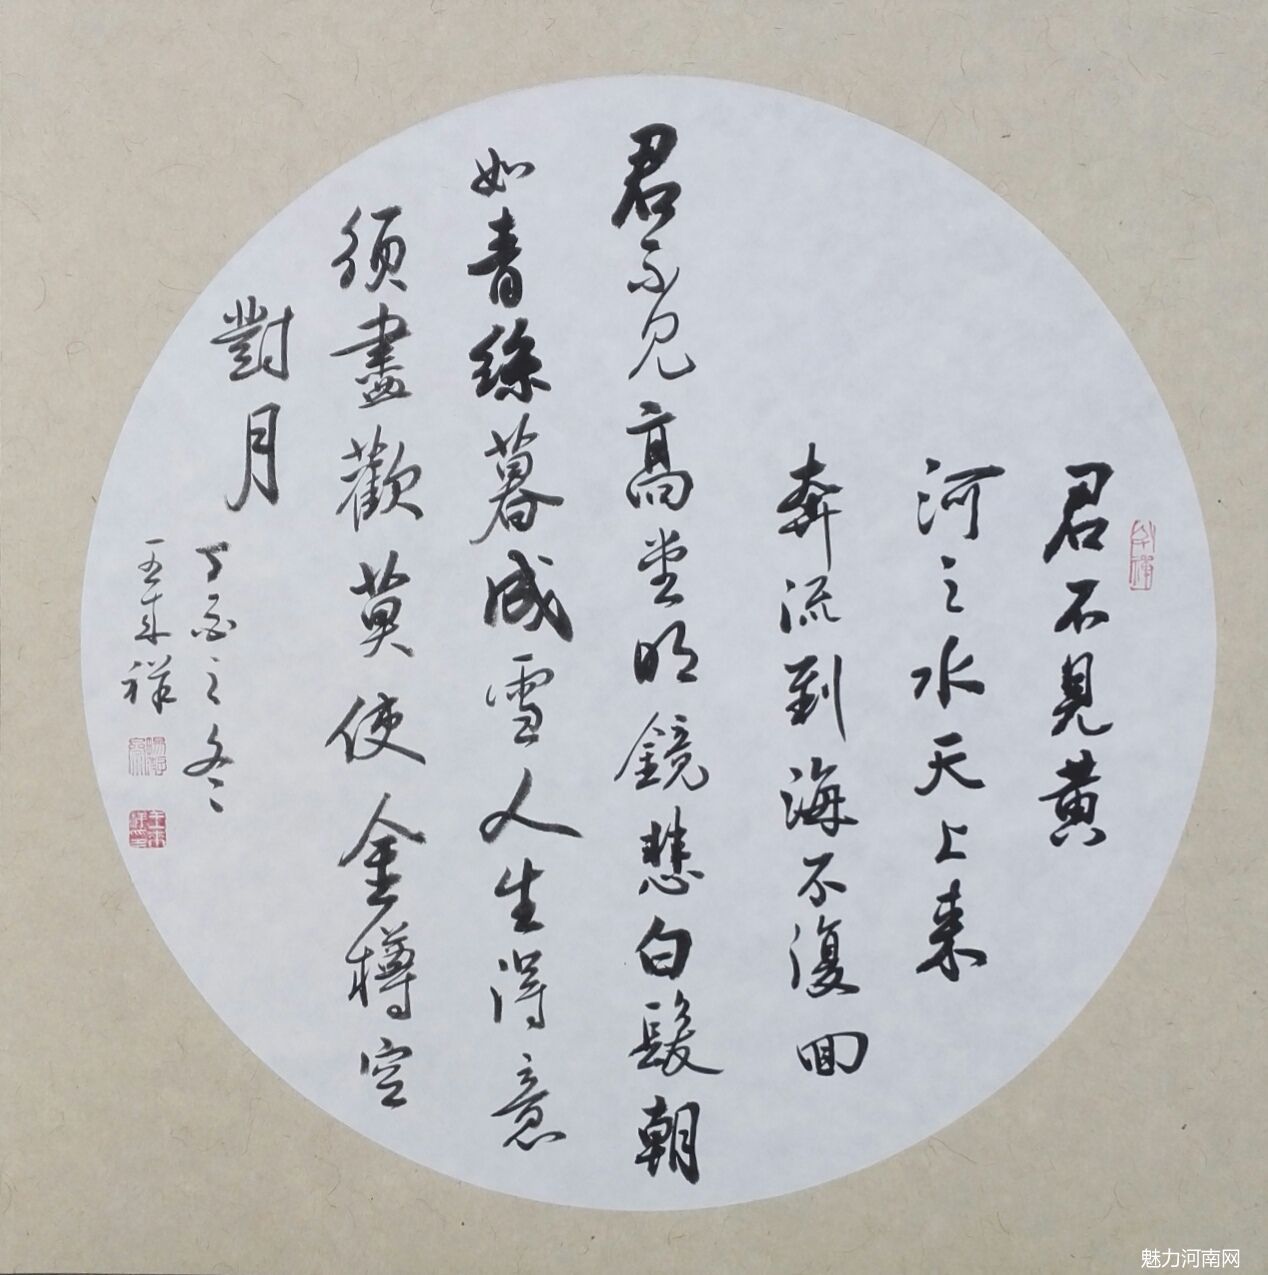 君不見黄
河之水天上来
奔流到海不復回
君不见高堂明鏡悲白髮朝
如青絲暮成雪人生得意
须盡歡莫使金樽空
對月
丁酉之冬
王来祥
魅力河南网